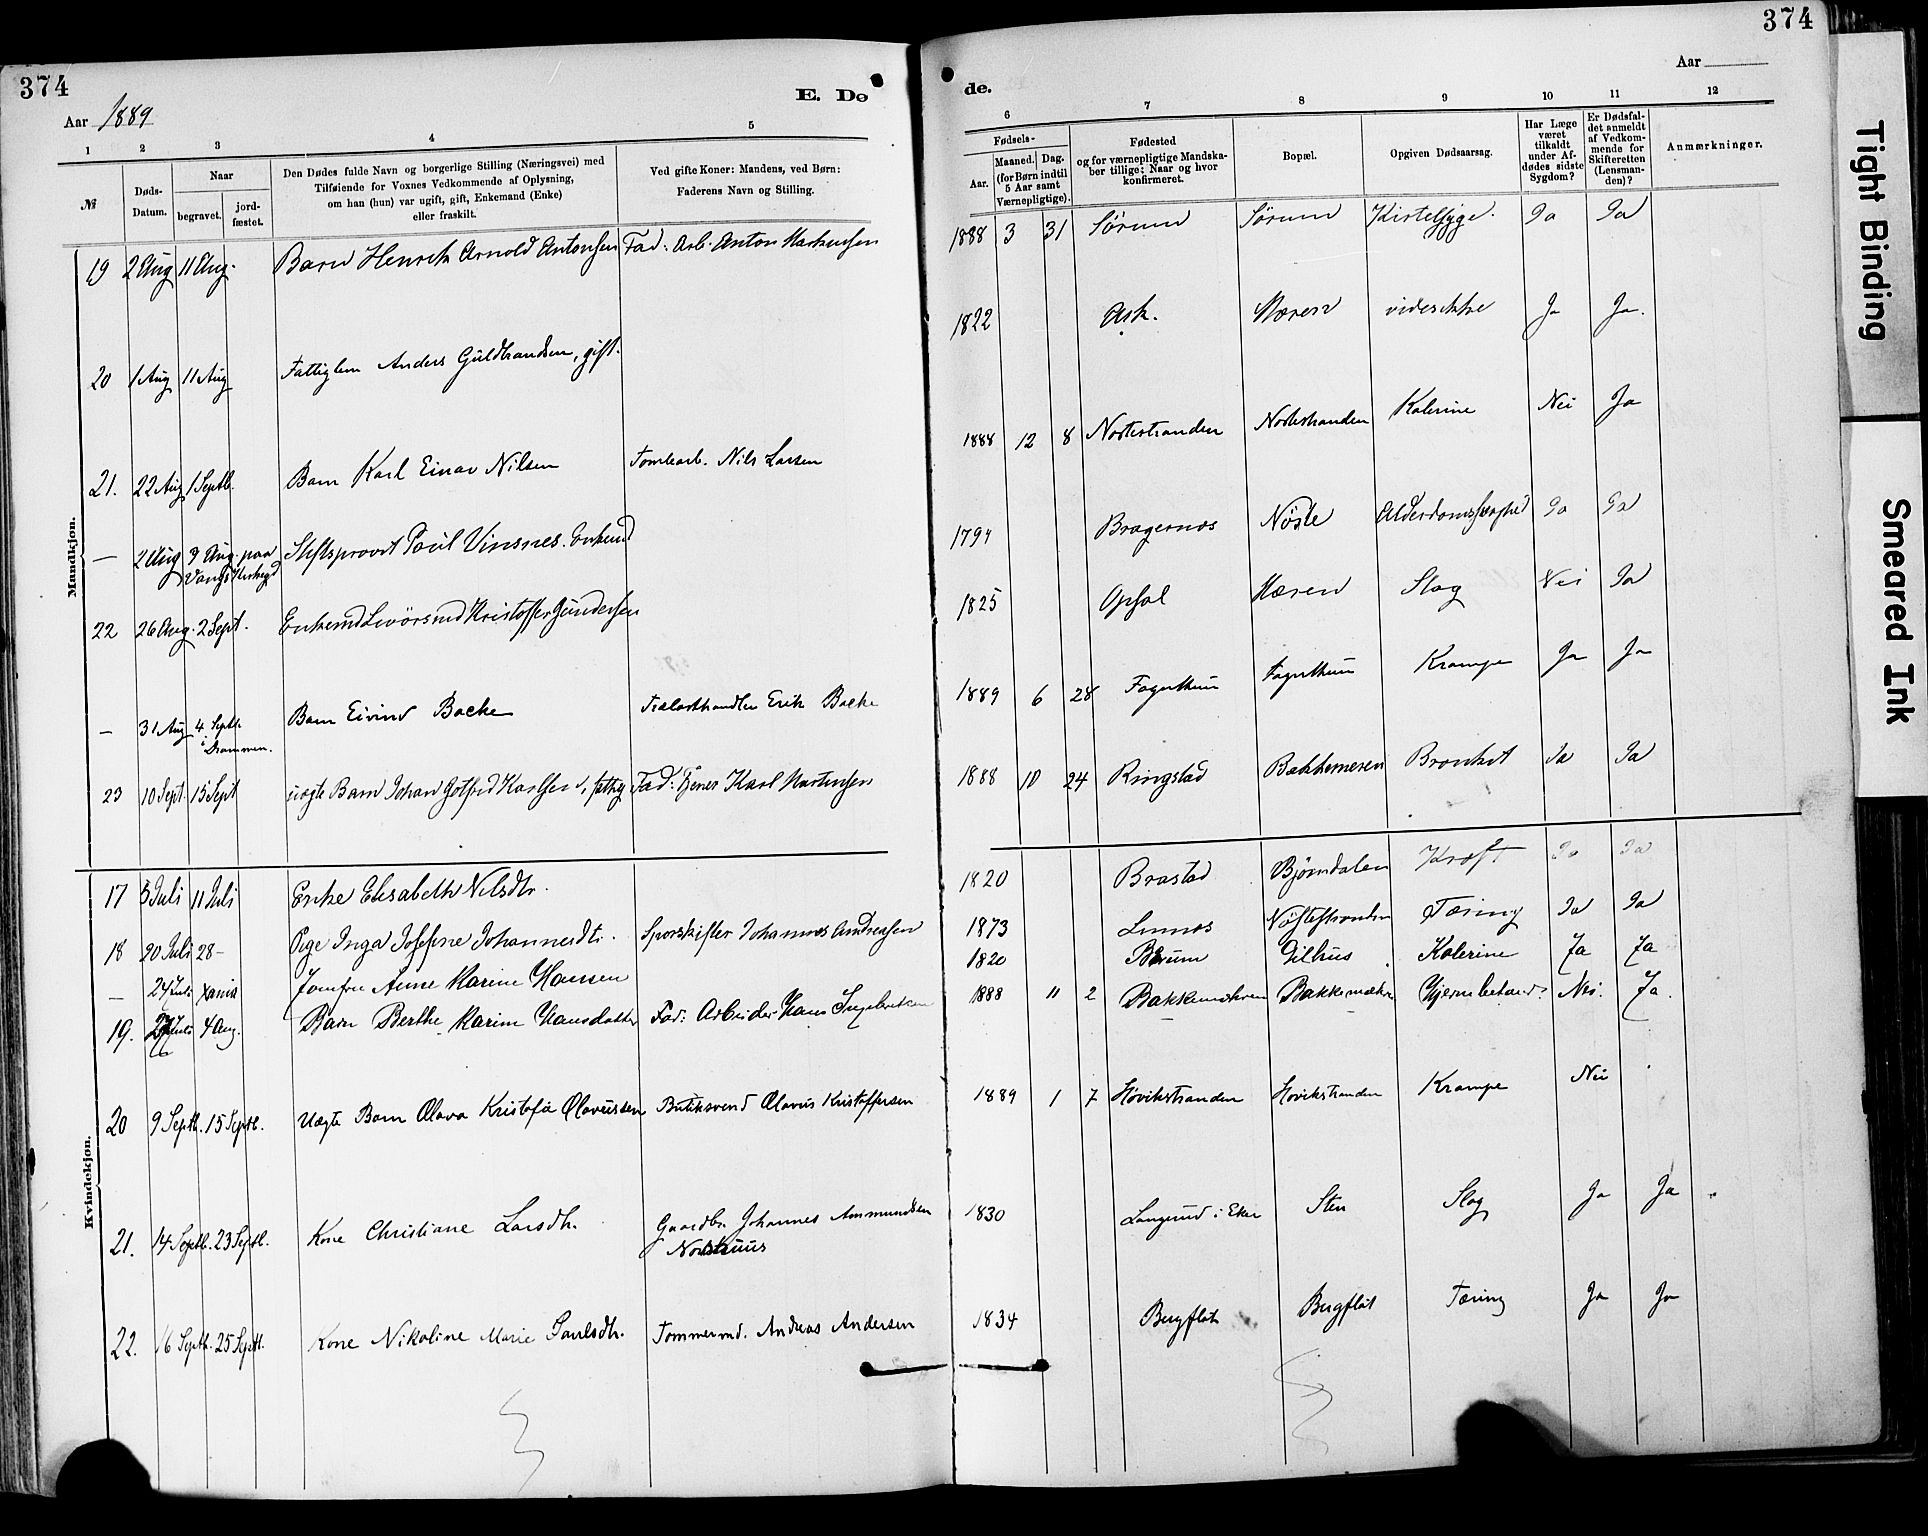 374
Aar 1889
E. Dø
1 2 3 4 5
№
Døds-
Datum.
Naar
begravet.
jord-
fæstet.
Den Dødes fulde Navn og borgerlige Stilling (Næringsvei) med
Tilføiende for Voxnes Vedkommende af Oplysning,
om han (hun) var ugift, gift, Enkemand (Enke)
eller fraskilt.
Ved gifte Koner: Mandens, ved Børn:
Faderens Navn og Stilling.
Mandkjøn.
19 2 Aug 11 Aug. Barn Henrik Arnold Antonsen Fad: Arb. Anton Martinsen
20 1 Aug 11 Aug Fattiglem Anders Guldbrandsen, gift.
21. 22 Aug 1 Septb. Barn Karl Einar Nilsen Tomtearb. Nils Larsen
— 2 Aug 9 Aug. paa Stiftsprovst Poul Vinsnes. Enkemd
Vangs Kirkegd
22 26 Aug. 2 Sept. Enkemd Kristoffer Gundersen
— 31 Aug 4 Septb. Barn Eivind Backe Trælasthandler Erik Backe
i Drammen.
23 10 Sept. 15 Sept uægte Barn Johan Gotfred Karlsen, fattig Fad: Tjener Karl Martinsen
Kvindekjøn.
17 5 Juli 11 Juli Enke Elisabeth Nilsdtr.
18 20 Juli 28 — Pige Inga Josefine Johannesdtr. Sporskifter Johannes Andreasen
— 24 Juli Xania Jomfru Anne Marine Hansen
19. 27 Juli 4 Aug. Barn Berthe Marine Hansdatter Fad: Arbeider Hans Ingebretsen
20 9 Septb. 15 Septb. Uægte Barn Olava Kristofa Olavesen Butiksvend Olavus Kristoffersen
21. 14 Septb. 23 Septb. Kone Christiane Larsdtr. Gaardbr. Johannes Ammundsen
22. 16 Septb. 25 Septb. Kone Nikoline Marie Paulsdtr. Tømmermd. Andreas Andersen
374
Aar
de.
6 7 8 9 10 11 12
Fødsels-
Aar.
Maaned. Dag.
(for Børn indtil
5 Aar samt
Værnepligtige).
Fødested
og for værnepligtige Mandska-
ber tillige: Naar og hvor
konfirmeret.
Bopæl.
Opgiven Dødsaarsag.
Har Læge
været
tilkaldt
under Af-
dødes sidste
Sygdom?
Er Dødsfal-
det anmeldt
af Vedkom-
mende for
Skifteretten
(Lensman-
den)?
Anmærkninger.
1888 3 31 Sørum Sørum Kirtelsyge. Ja Ja
1822 Ask. Mæren vides ikke Ja Ja.
1888 12 8 Nøstestranden Nøstestranden Kolerine Nei Ja
1794 Bragernæs Nøste Alderdomssvaghed Ja Ja
1825 Opsal Mæren Slag Nei Ja
1889 6 28 Fagerthun Fagerthun Krampe Ja Ja
1888 10 24 Ringstad Bakkemæren Bronkit Ja Ja
1820 Brastad Bjørndalen Kræft Ja Ja
1873 Linnæs Nøstestranden Tæring Ja Ja
1820 Bærum Gilhus Kolerine Ja Ja
1888 11 2 Bakkemæhren Bakkemæhren Hjernebetænd. Nei. Ja.
1889 1 7 Høvikstranden Høvikstranden Krampe Nei
1830 Langrud i Eker Sten Slag Ja Ja
1834 Bergflöt Bergflöt Tæring Ja Ja
Tight Binding
Smeared Ink